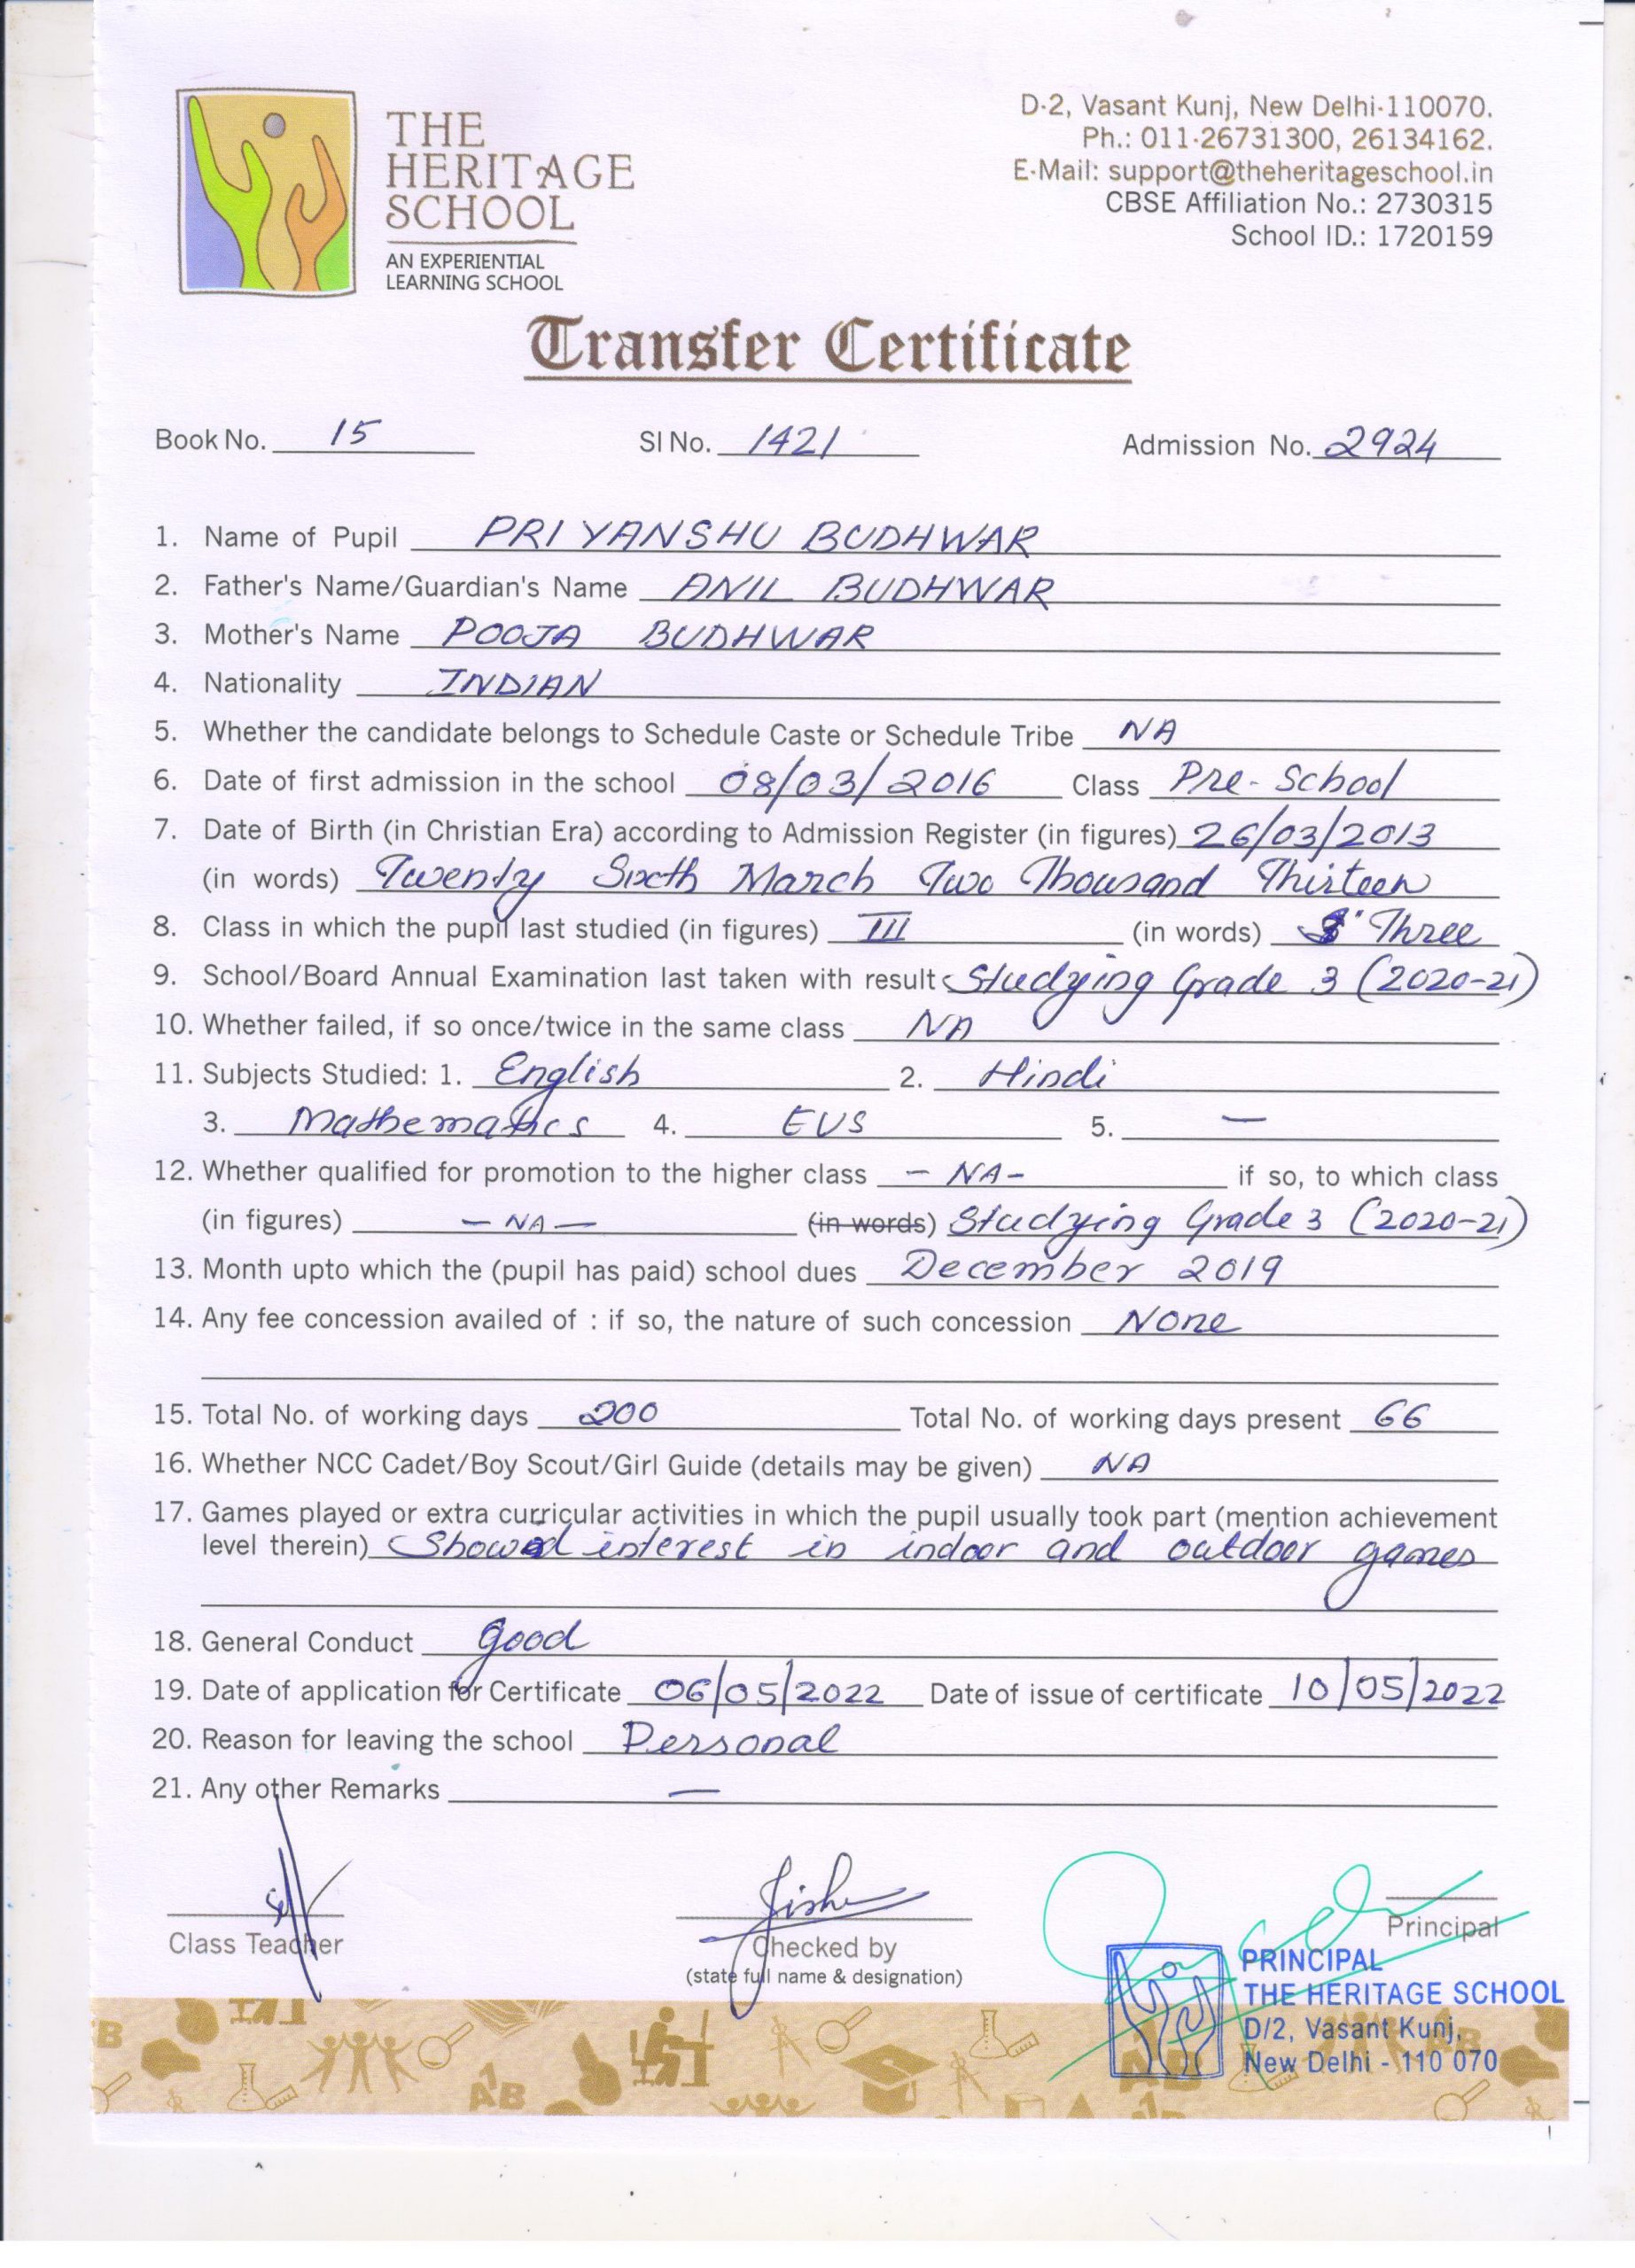 THE
HERITAGE
SCHOOL
AN EXPERIENTIAL
LEARNING SCHOOL
D-2, Vasant Kunj, New Delhi-110070.
Ph.: 011-26731300, 26134162.
E-Mail: support@theheritageschool.in
CBSE Affiliation No.: 2730315
School ID.: 1720159
Transfer Certificate
Book No. 15 Sl No. 1421 Admission No. 2924
1. Name of Pupil PRIYANSHU BUDHWAR
2. Father's Name/Guardian's Name ANIL BUDHWAR
3. Mother's Name POOJA BUDHWAR
4. Nationality INDIAN
5. Whether the candidate belongs to Schedule Caste or Schedule Tribe NA
6. Date of first admission in the school 08/03/2016 Class Pre-School
7. Date of Birth (in Christian Era) according to Admission Register (in figures) 26/03/2013
(in words) Twenty Sixth March Two Thousand Thirteen
8. Class in which the pupil last studied (in figures) III (in words) Three
9. School/Board Annual Examination last taken with result Studying Grade 3 (2020-21)
10. Whether failed, if so once/twice in the same class NA
11. Subjects Studied: 1. English 2. Hindi
3. Mathematics 4. EVS 5. —
12. Whether qualified for promotion to the higher class - NA - if so, to which class
(in figures) — NA — (in words) Studying Grade 3 (2020-21)
13. Month upto which the (pupil has paid) school dues December 2019
14. Any fee concession availed of : if so, the nature of such concession None
15. Total No. of working days 200 Total No. of working days present 66
16. Whether NCC Cadet/Boy Scout/Girl Guide (details may be given) NA
17. Games played or extra curricular activities in which the pupil usually took part (mention achievement
level therein) Showed interest in indoor and outdoor games
18. General Conduct good
19. Date of application for Certificate 06/05/2022 Date of issue of certificate 10/05/2022
20. Reason for leaving the school Personal
21. Any other Remarks —
Class Teacher
Checked by
(state full name & designation)
Principal
PRINCIPAL
THE HERITAGE SCHOOL
D/2, Vasant Kunj,
New Delhi - 110 070